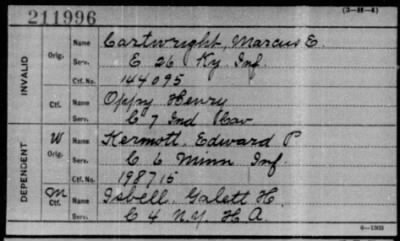 211996
(3-H-4)
INVALID
Orig.
Name Cartwright, Marcus E.
Serv. E 26 Ky. Inf.
Ctf. No. 144095
Ctf.
Name Oppy Henry
Serv. C 7 Ind Cav
DEPENDENT
W
Orig.
Name Kermott, Edward P
Serv. C 6 Minn Inf.
Ctf. No. 198715
M
Ctf.
Name Isbell, Galett H.
Serv. C 4 N.Y. H A